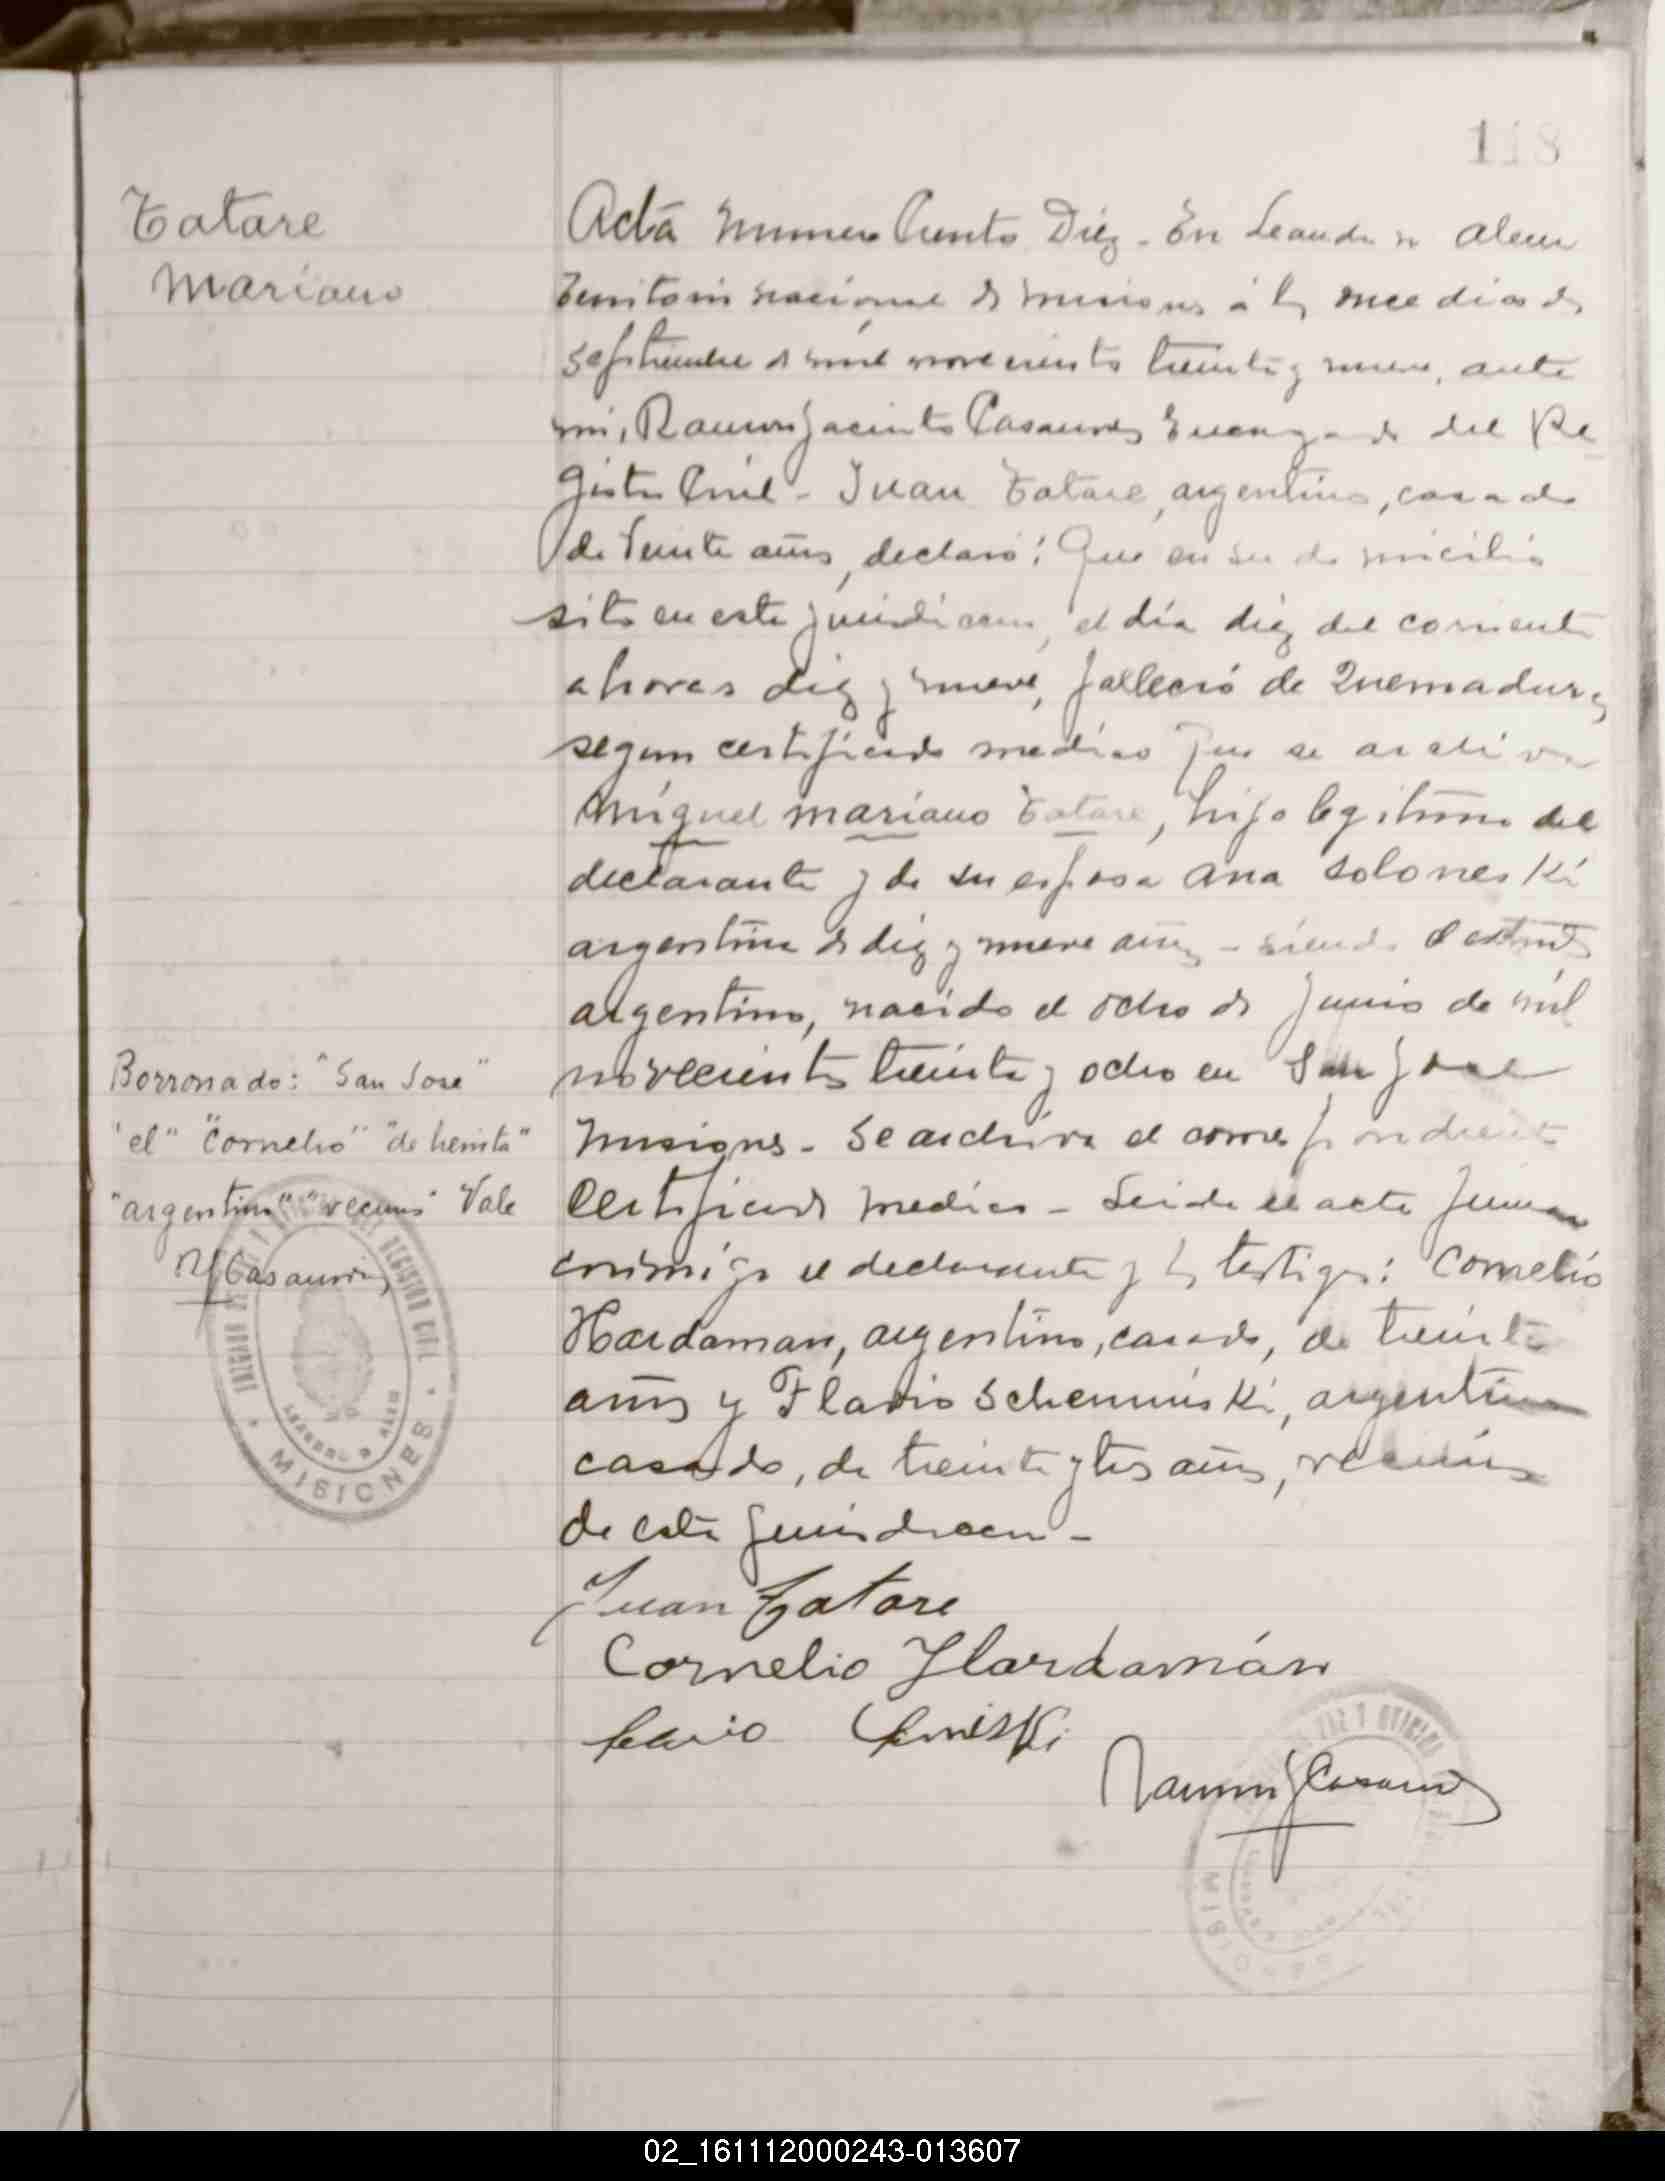 118
Tatare
Mariano
Acta número Ciento Diez - En Leandro N Alem
Territorio nacional de misiones á los once dias de
septiembre de mil novecientos treinta y nueve, ante
mi, Ramon Jacinto Casaures Encargado del Re-
gistro Civil - Juan Tatare, argentino, casado
de veinte años, declaró: Que en su domicilio
sito en esta jurisdiccion, el día diez del corriente
a horas diez y nueve, falleció de Quemaduras
segun certificado medico que se archiva
Miguel Mariano Tatare, hijo legitimo del
declarante y de su esposa Ana Soloneski
argentina de diez y nueve años - siendo el extinto
argentino, nacido el ocho de Junio de mil
novecientos treinta y ocho en San Jose
Misiones - Se archiva el correspondiente
Certificado medico - Leida el acta firman
conmigo el declarante y los testigos: Cornelio
Hardaman, argentino, casado, de treinta
años y Flavio Schemiński, argentino
casado, de treinta y tres años, vecinos
de esta jurisdiccion -
Borronado: "San Jose"
"el" "Cornelio" "de treinta"
"argentino" "vecinos" Vale
RJCasaures
Juan Tatare
Cornelio Hardamán
Ramon J Casaures
REGISTRO CIVIL
MISIONES
02_161112000243-013607